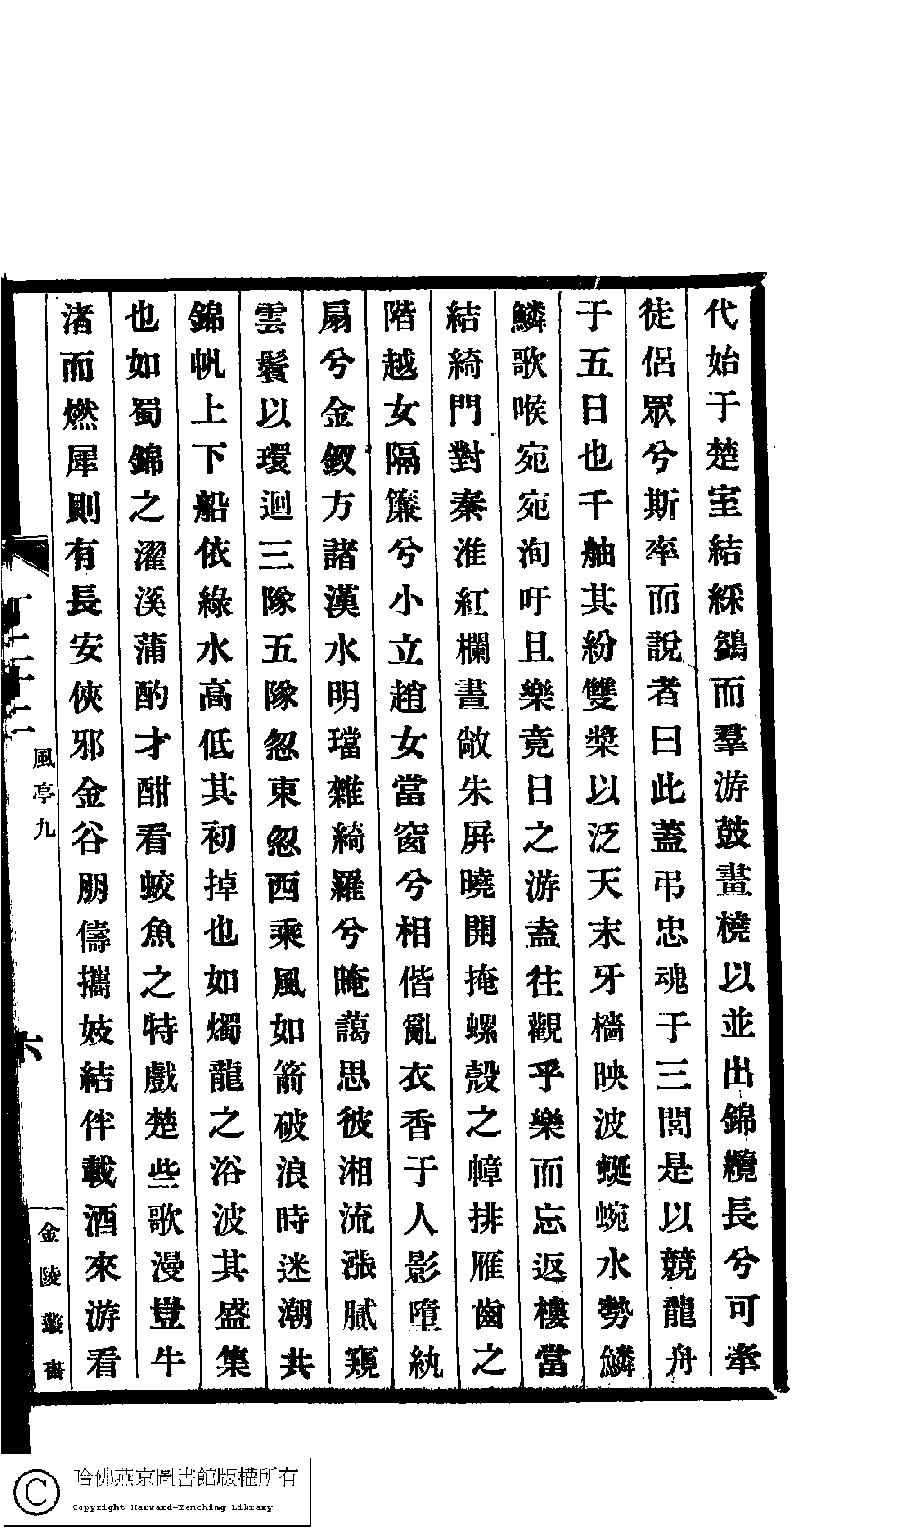 代始于楚室結綵鷁而羣游鼓畫橈以並出錦纜長兮可牽
徒侶眾兮斯率而說者曰此蓋弔忠魂于三閭是以競龍舟
于五日也千舳其紛雙槳以泛天末牙檣映波蜒蜿水勢鱗
鱗歌喉宛宛洵吁且樂竟日之游盍往觀乎樂而忘返樓當
結綺門對秦淮紅欄晝敞朱屏曉開掩螺殼之幛排雁齒之
階越女隔簾兮小立趙女當窗兮相偕亂衣香于人影墮紈
扇兮金釵方諸漢水明璫雜綺羅兮晻藹思彼湘流漲膩窺
雲鬟以環迴三隊五隊忽東忽西乘風如箭破浪時迷潮共
錦帆上下船依綠水高低其初掉也如燭龍之浴波其盛集
也如蜀錦之濯溪蒲酌才酣看蛟魚之特戲楚些歌漫豈牛
渚而燃犀則有長安俠邪金谷朋儔攜妓結伴載酒來游看
風亭九
六
金陵叢書
哈佛燕京圖書館版權所有
Copyright Harvard-Yenching Library